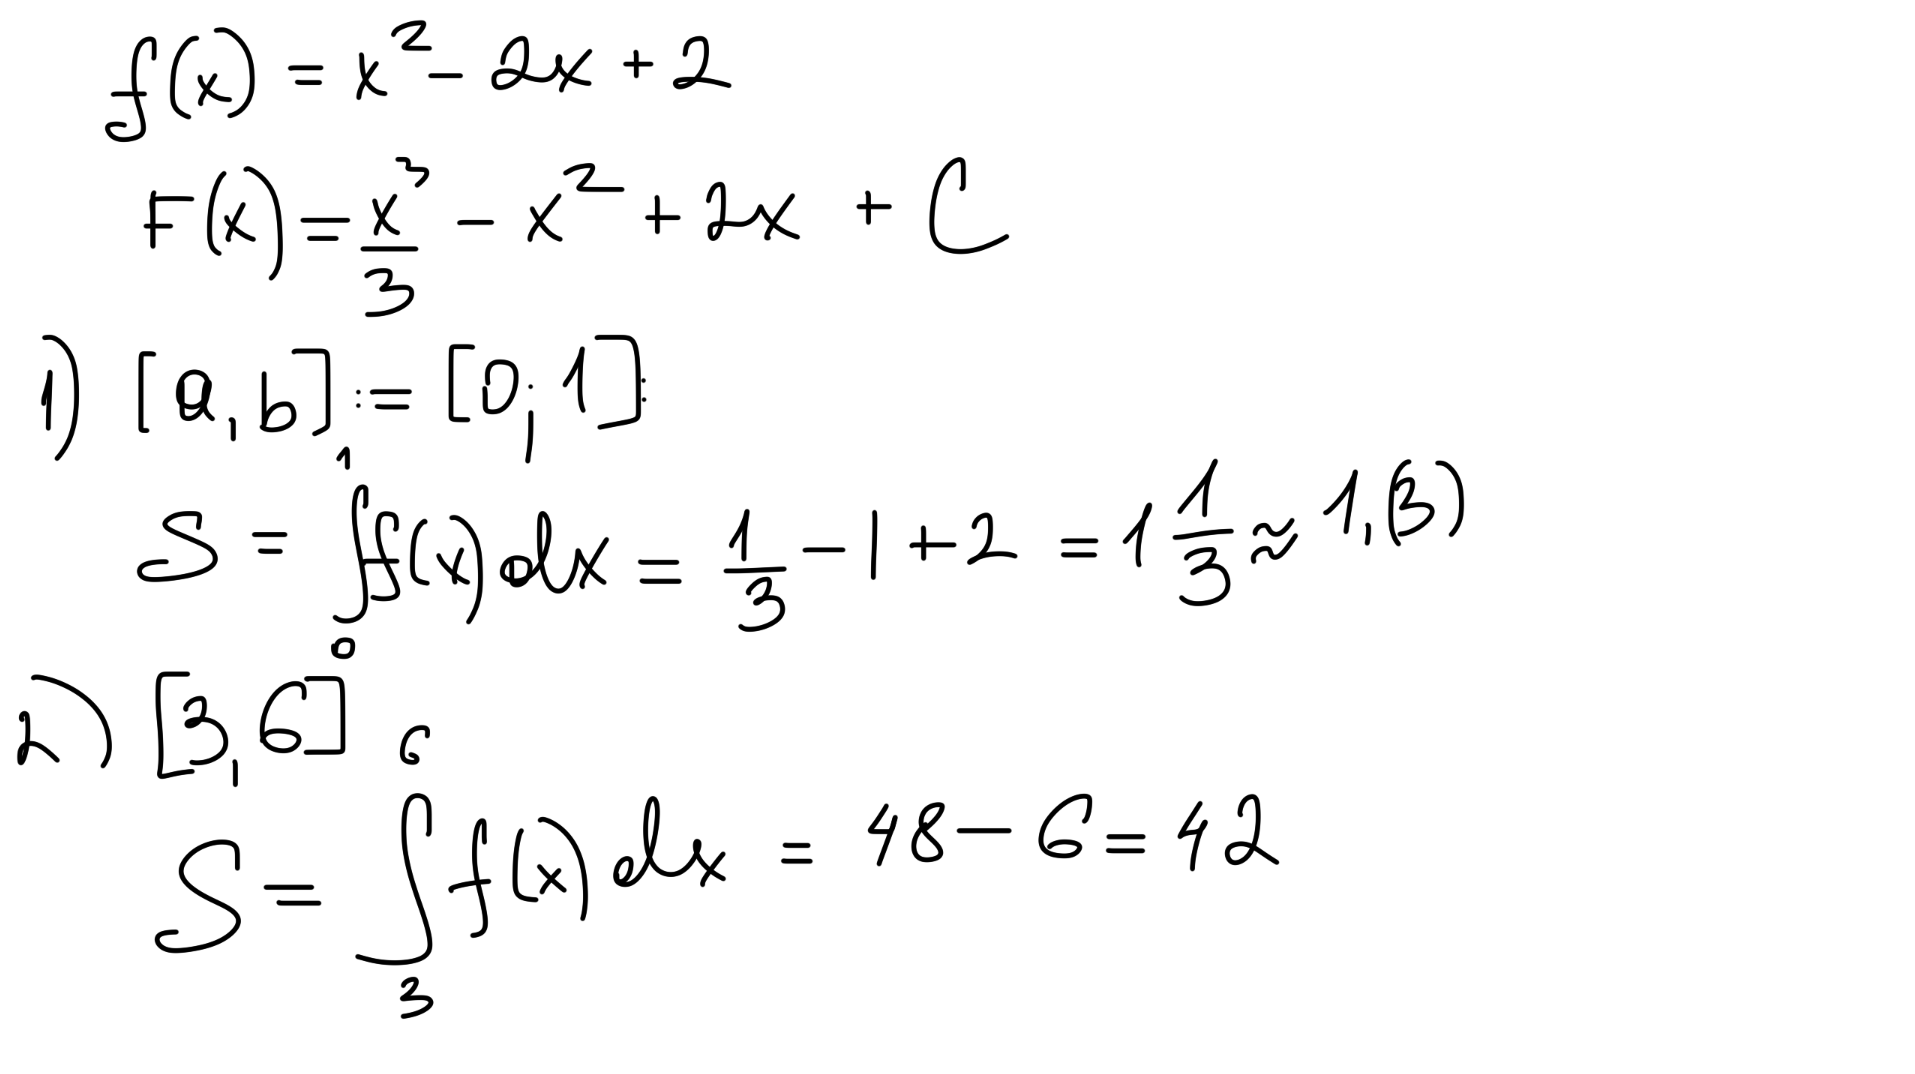 f(x) = x² - 2x + 2
F(x) = x³/3 - x² + 2x + C
1) [a, b] := [0; 1]:
S = ∫₀¹ f(x) dx = 1/3 - 1 + 2 = 1 1/3 ≈ 1,(3)
2) [3, 6]
S = ∫₃⁶ f(x) dx = 48 - 6 = 42